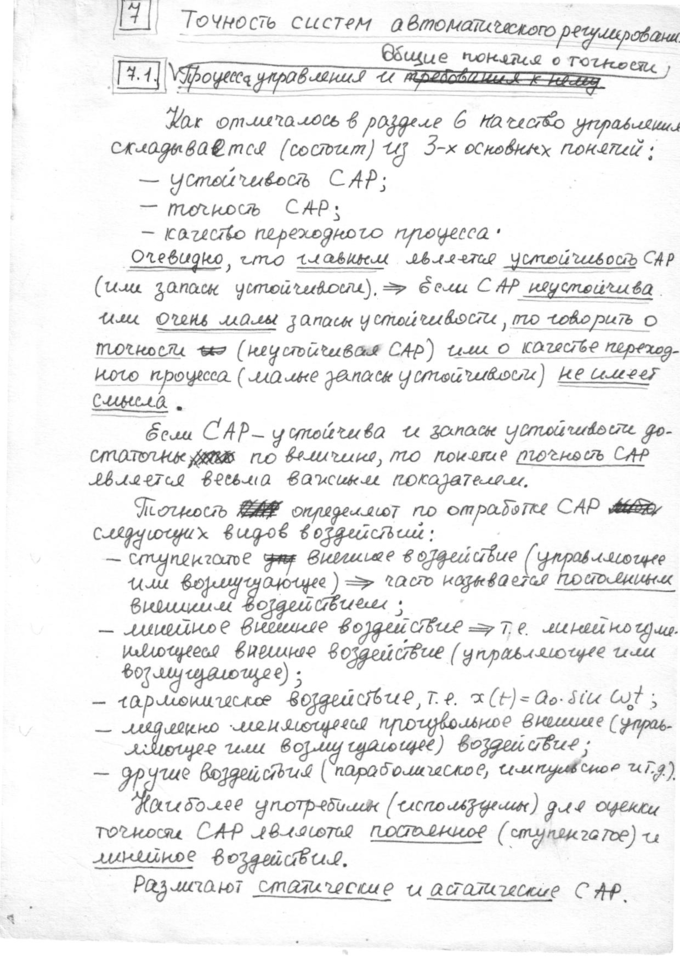 7 Точность систем автоматического регулировани
Общие понятия о точности,
7.1. Процесса управления и требования к нему
Как отмечалось в разделе 6 качество управления
складывается (состоит) из 3-х основных понятий:
— устойчивость САР;
— точность САР;
— качество переходного процесса.
Очевидно, что главным является устойчивость САР
(или запасы устойчивости). ⇒ Если САР неустойчива
или очень малы запасы устойчивости, то говорить о
точности (неустойчивая САР) или о качестве переход-
ного процесса (малые запасы устойчивости) не имеет
смысла.
Если САР – устойчива и запасы устойчивости до-
статочны по величине, то понятие точность САР
является весьма важным показателем.
Точность определяют по отработке САР
следующих видов воздействий:
– ступенчатое внешнее воздействие (управляющее
или возмущающее) ⇒ часто называется постоянным
внешним воздействием;
– линейное внешнее воздействие ⇒ т.е. линейно изме-
няющееся внешнее воздействие (управляющее или
возмущающее);
– гармоническое воздействие, т.е. x(t) = a₀·sin ω₀t;
– медленно меняющееся произвольное внешнее (управ-
ляющее или возмущающее) воздействие;
– другие воздействия (параболическое, импульсное и т.д.).
Наиболее употребимы (используемы) для оценки
точности САР являются постоянное (ступенчатое) и
линейное воздействия.
Различают статические и астатические САР.